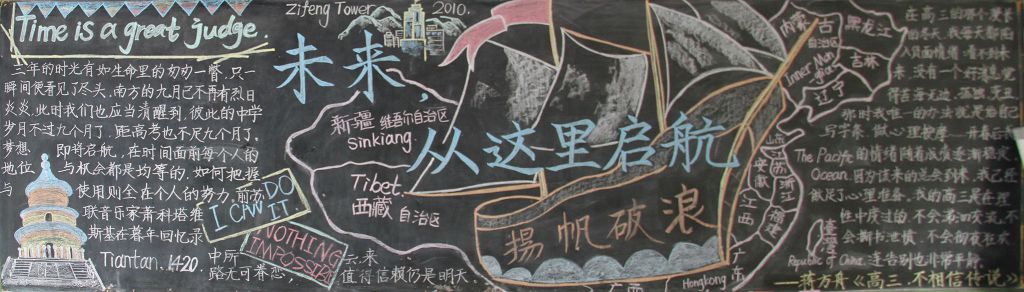 Time is a great judge.
三年的时光有如生命里的匆匆一瞥,只一
瞬间便看见了尽头,南方的九月已不再有烈日
炎炎,此时我们也应当清醒到,彼此的中学
岁月不过九个月了,距高考也不足九个月了,
梦想 即将启航,在时间面前每个人的
地位 与机会都是均等的,如何把握
与 使用则全在个人的努力,前苏
联音乐家萧科塔维
斯基在暮年回忆录
中所
Tiantan. 1420.
路无可眷恋,
云来
值得信赖仍是明天。
I CAN DO IT
NOTHING IMPOSSIBLE
Zifeng Tower 2010.
未来,
从这里启航
新疆 维吾尔自治区
Sinkiang.
Tibet.
西藏 自治区
揚帆破浪
内蒙古
自治区
Inner Mongolia
黑龙江
吉林
辽宁
安徽
江苏
浙江
江西
福建
臺灣
Republic of China
广东
广西
Hongkong
在高三的哪个
没有一个好
那时我唯一的办法就是给自己
写字条,做心理按摩
The Pacific Ocean.
的情绪随着成绩逐渐稳定
因为该来的总会到来,我已经
做足了心理准备。我的高三是在理
性中度过的,不会
会撕书泄愤,不会彻夜狂欢
连告别也非常平静
——蒋方舟《高三,不相信传说》